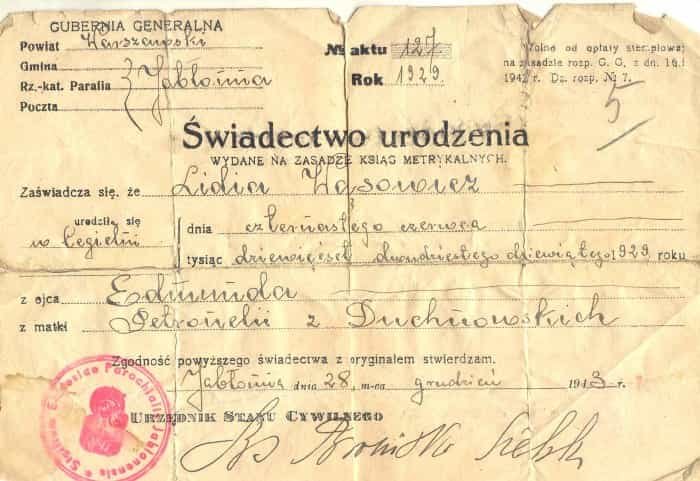 GUBERNIA GENERALNA
Powiat Warszawski
Gmina
Rz.-kat. Parafia Jabłonna
Poczta
№ aktu 127
Rok 1929
Wolne od opłaty stemplowej
na zasadzie rozp. G. G. z dn. 16.I
1942 r. Dz. rozp. № 7.
5
Świadectwo urodzenia
WYDANE NA ZASADZIE KSIĄG METRYKALNYCH.
Zaświadcza się, że Lidia Wąsowicz
urodziła się
w Cegielni
dnia czternastego czerwca
tysiąc dziewięćset dwudziestego dziewiątego 1929 roku
z ojca Edmunda
z matki Petroneli z Duchnowskich
Zgodność powyższego świadectwa z oryginałem stwierdzam.
Jabłonna dnia 28 m-ca grudzień 1943 r.
URZĘDNIK STANU CYWILNEGO
Ks
Ecclesiae Parochialis Jabłonensis